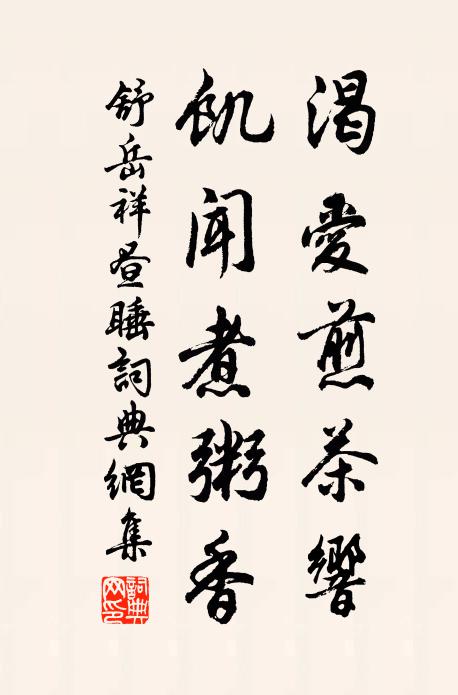 渴愛煎茶響
飢聞煮粥香
舒岳祥晝睡詞典網集
詞典網印